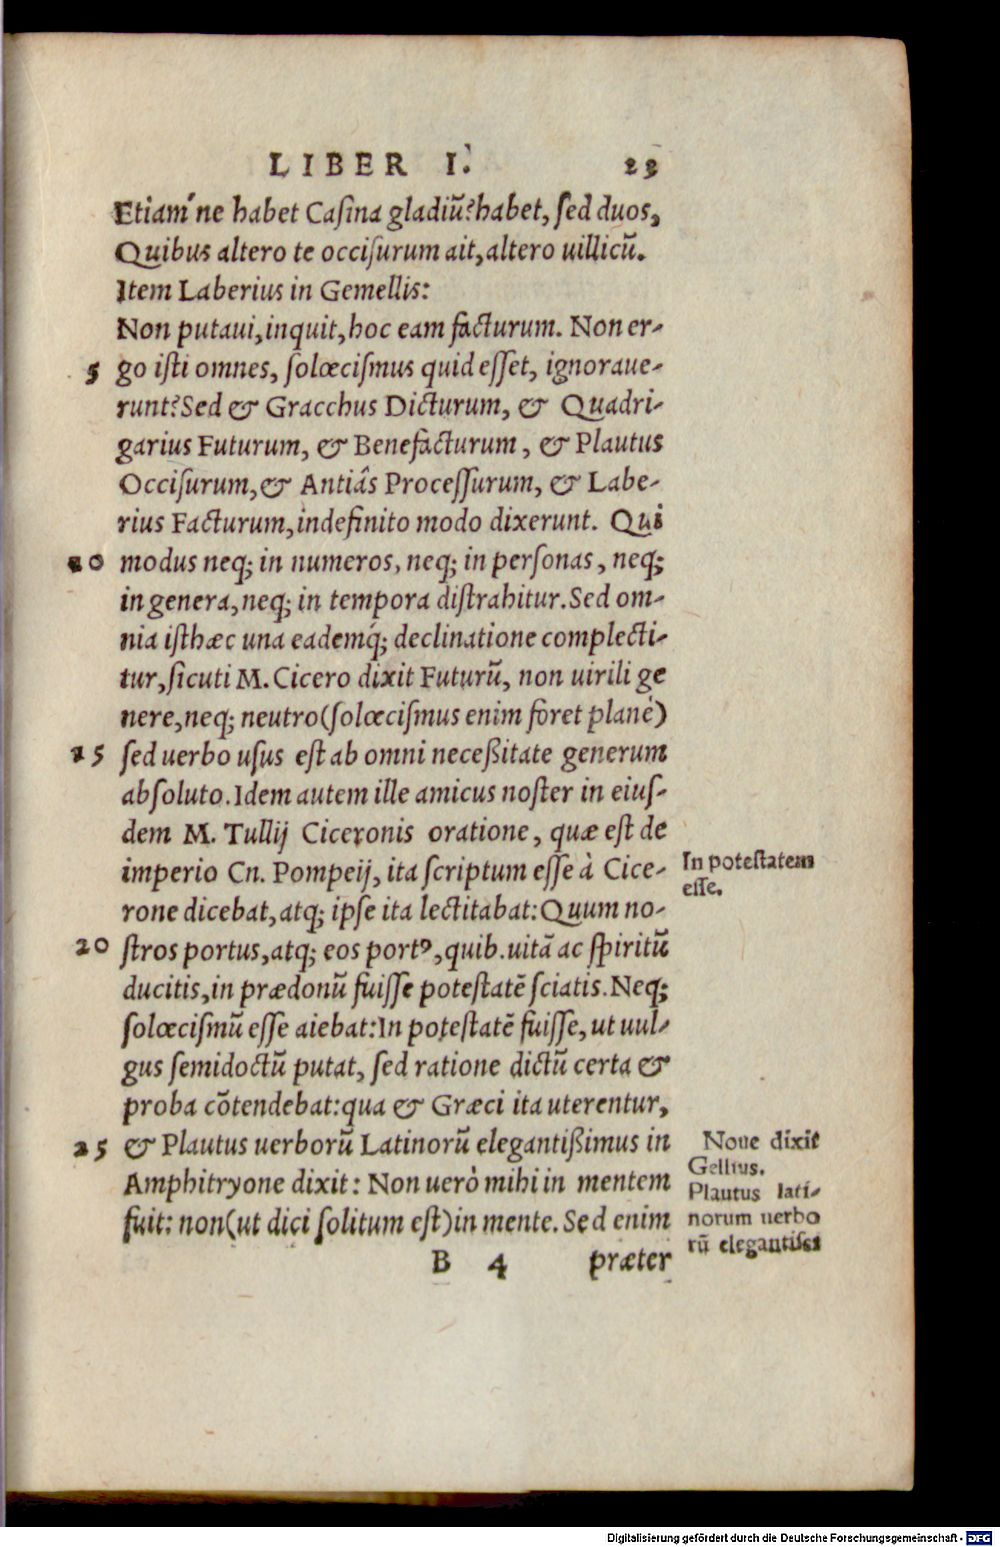 LIBER I. 23
Etiam'ne habet Casina gladiũ? habet, sed duos,
Quibus altero te occisurum ait, altero uillicũ.
Item Laberius in Gemellis:
Non putaui, inquit, hoc eam facturum. Non er-
5 go isti omnes, solœcismus quid esset, ignoraue-
runt? Sed & Gracchus Dicturum, & Quadri-
garius Futurum, & Benefacturum, & Plautus
Occisurum, & Antiâs Processurum, & Labe-
rius Facturum, indefinito modo dixerunt. Qui
10 modus neq; in numeros, neq; in personas, neq;
in genera, neq; in tempora distrahitur. Sed om-
nia isthæc una eademq́; declinatione complecti-
tur, sicuti M. Cicero dixit Futurũ, non uirili ge
nere, neq; neutro (solœcismus enim foret planè)
15 sed uerbo usus est ab omni neceßitate generum
absoluto. Idem autem ille amicus noster in eius-
dem M. Tullij Ciceronis oratione, quæ est de
imperio Cn. Pompeij, ita scriptum esse à Cice-
In potestatem
esse.
rone dicebat, atq; ipse ita lectitabat: Quum no-
20 stros portus, atq; eos portꝰ, quib. uitã ac spiritũ
ducitis, in prædonũ fuisse potestatẽ sciatis. Neq;
solœcismũ esse aiebat: In potestatẽ fuisse, ut uul-
gus semidoctũ putat, sed ratione dictũ certa &
proba cõtendebat: qua & Græci ita uterentur,
25 & Plautus uerborũ Latinorũ elegantißimus in
Amphitryone dixit: Non uerò mihi in mentem
fuit: non (ut dici solitum est) in mente. Sed enim
Noue dixit
Gellius.
Plautus lati-
norum uerbo
rũ elegantiss
B 4 præter
Digitalisierung gefördert durch die Deutsche Forschungsgemeinschaft - DFG